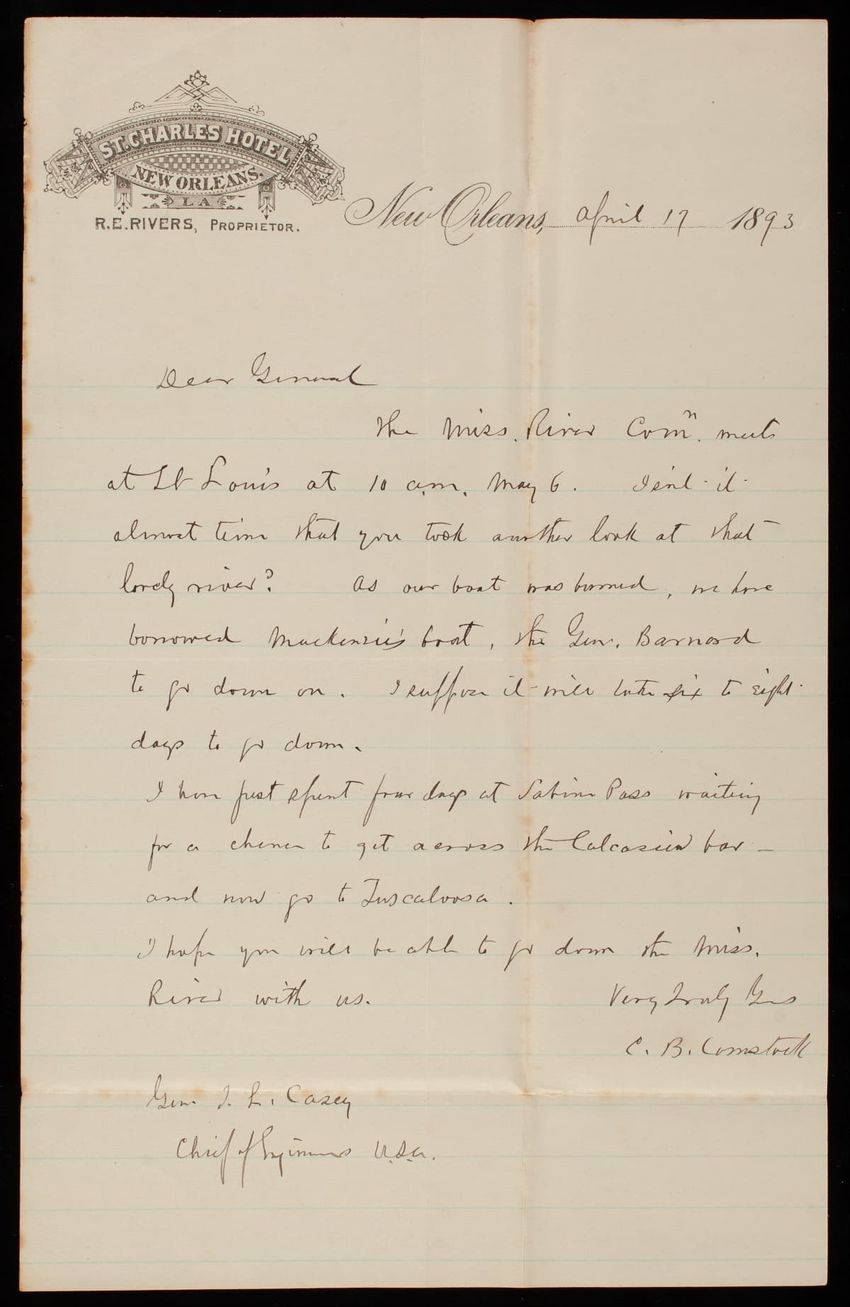 ST. CHARLES HOTEL
NEW ORLEANS.
LA
R.E. RIVERS, PROPRIETOR.
New Orleans, April 17 1893
Dear General
The Miss. River Comn. meets
at St Louis at 10 a.m. May 6. Isnt it
almost time that you took another look at that
lovely river? As our boat was burned, we have
borrowed Mackenzie's boat, the Gen. Barnard
to go down on. I suppose it will take six to eight
days to go down.
I have just spent four days at Sabine Pass waiting
for a chance to get across the Calcasieu bar –
and now go to Tuscaloosa.
I hope you will be able to go down the Miss.
River with us.
Very Truly Yrs
C. B. Comstock
Gen. T. L. Casey
Chief of Engineers U.S.A.